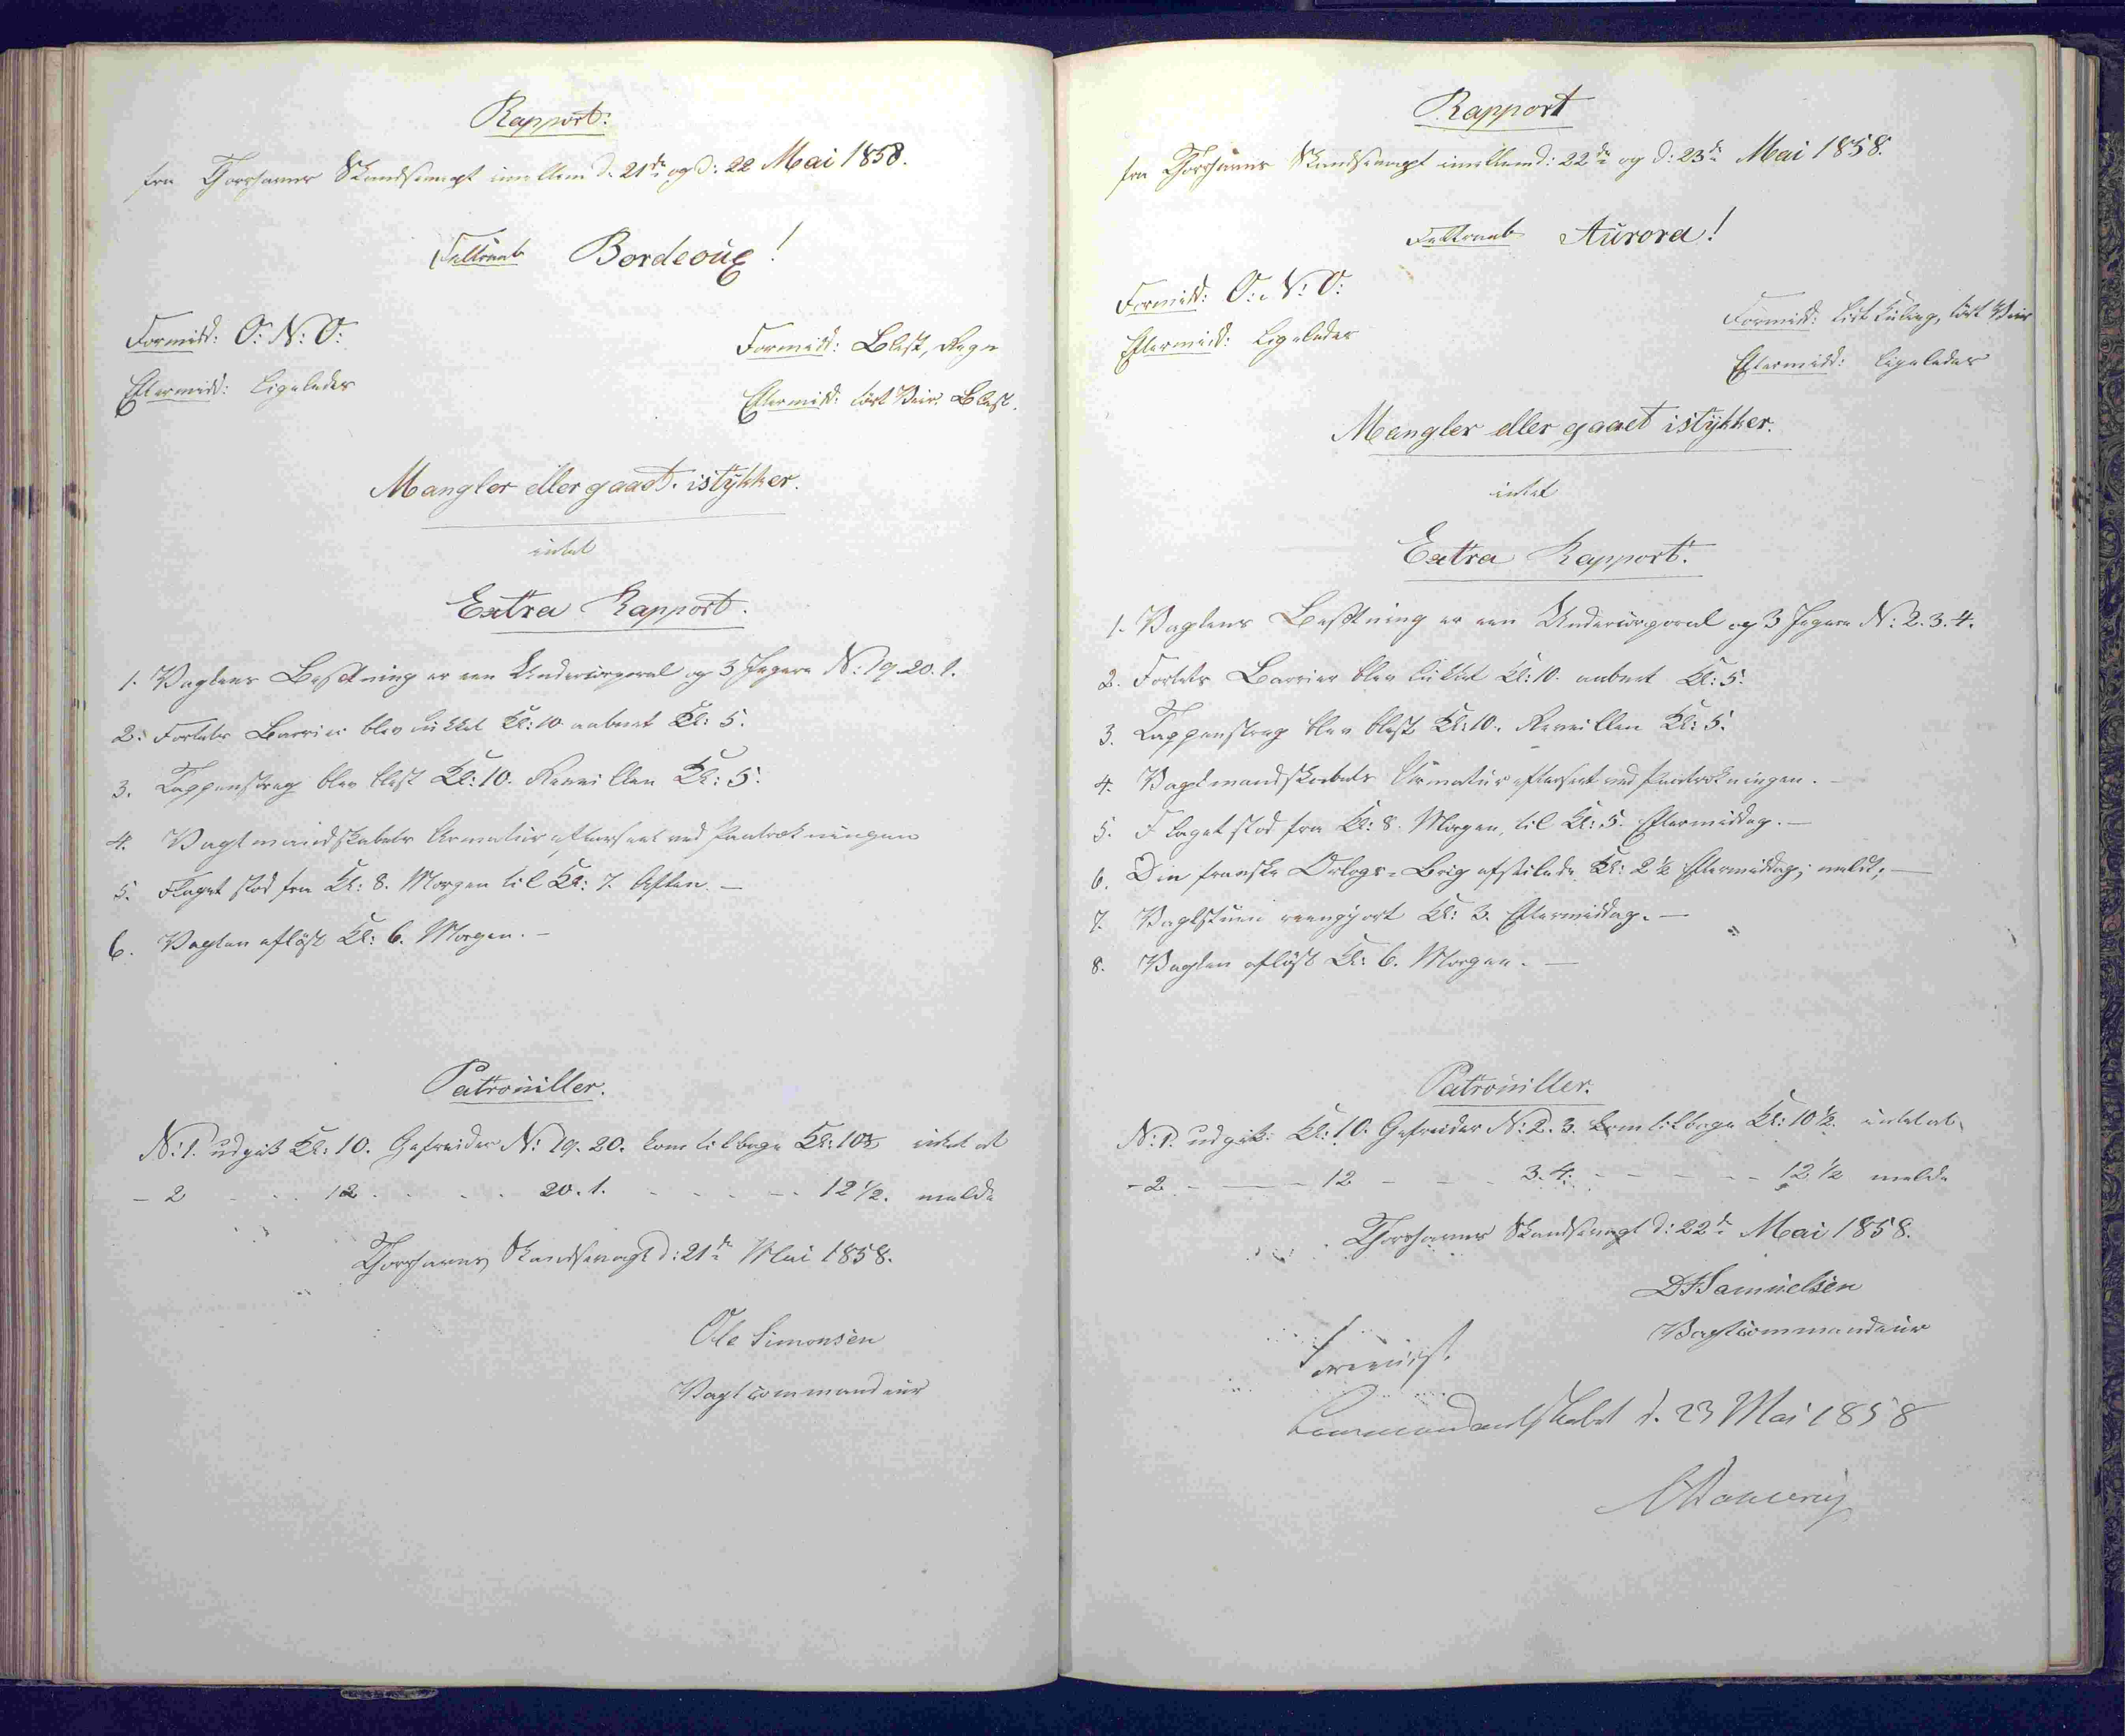 Rapport.
fra Thorshavns Skandsevagt imellem d: 21de og d: 22 Mai 1858.
Feltraab Bordeoux!
Formidd: O: N: O:
Eftermidd: Ligeledes
Formidd: Blæst, Regn
Eftermidd: tört Veir. Blæst.
Mangler eller gaaet istykker.
intet
Extra Rapport.
1. Vagtens Besætning er een Undercorporal og 3 Jægere N: 19. 20. 1.
2. Fortets Barrier blev lukket Kl: 10. aabnet Kl: 5.
3. Tappenstreg blev blæst Kl: 10. Reveillen Kl: 5.
4. Vagtmandskabets Armatur efterseet ved Paatrækningen
5. Flaget stod fra Kl: 8. Morgen til Kl: 7. Aften. –
6. Vagten aflöst Kl: 6. Morgen. –
Patrouiller.
N: 1. udgik Kl: 10. Gefreider N: 19. 20. kom tilbage Kl: 10½ intet at
– 2 - - 12 - - - 20. 1. - - - - 12 ½. melde
Thorshavns Skandsevagt d: 21de Mai 1858.
Ole Simonsen
Vagtcommandeur
Rapport
fra Thorshavns Skandsevagt imellem d: 22de og d: 23de Mai 1858.
Feltraab Aurora!
Formidd: O: N: O:
Eftermidd: Ligeledes
Formidd: lidt Kuling, tört Veir
Eftermidd: Ligeledes
Mangler eller gaaet istykker.
intet
Extra Rapport.
1. Vagtens Besætning er een Undercorporal og 3 Jægere N: 2. 3. 4.
2. Fortets Barrier blev lukket Kl: 10. aabnet Kl: 5.
3. Tappenstreg blev blæst Kl: 10. Reveillen Kl: 5.
4. Vagtmandskabets Armatur efterseet ved Paatrækningen. –
5. Flaget stod fra Kl: 8. Morgen, til Kl: 5. Eftermiddag. –
6. Den franske Orlogs-Brig afseilede Kl: 2 ½ Eftermiddag; meldt; –
7. Vagtstuen reengjort Kl: 3. Eftermiddag. –
8. Vagten aflöst Kl: 6. Morgen. –
Patrouiller.
N: 1. udgik Kl: 10. Gefreider N: 2. 3. kom tilbage Kl: 10 ½. intet at
– 2 - - 12 - - - 3. 4. - - - - 12 ½ melde
Thorshavns Skandsevagt d: 22de Mai 1858.
Samuelsen
Vagtcommandeur
Forevist.
Commandantskabet d. 23 Mai 1858